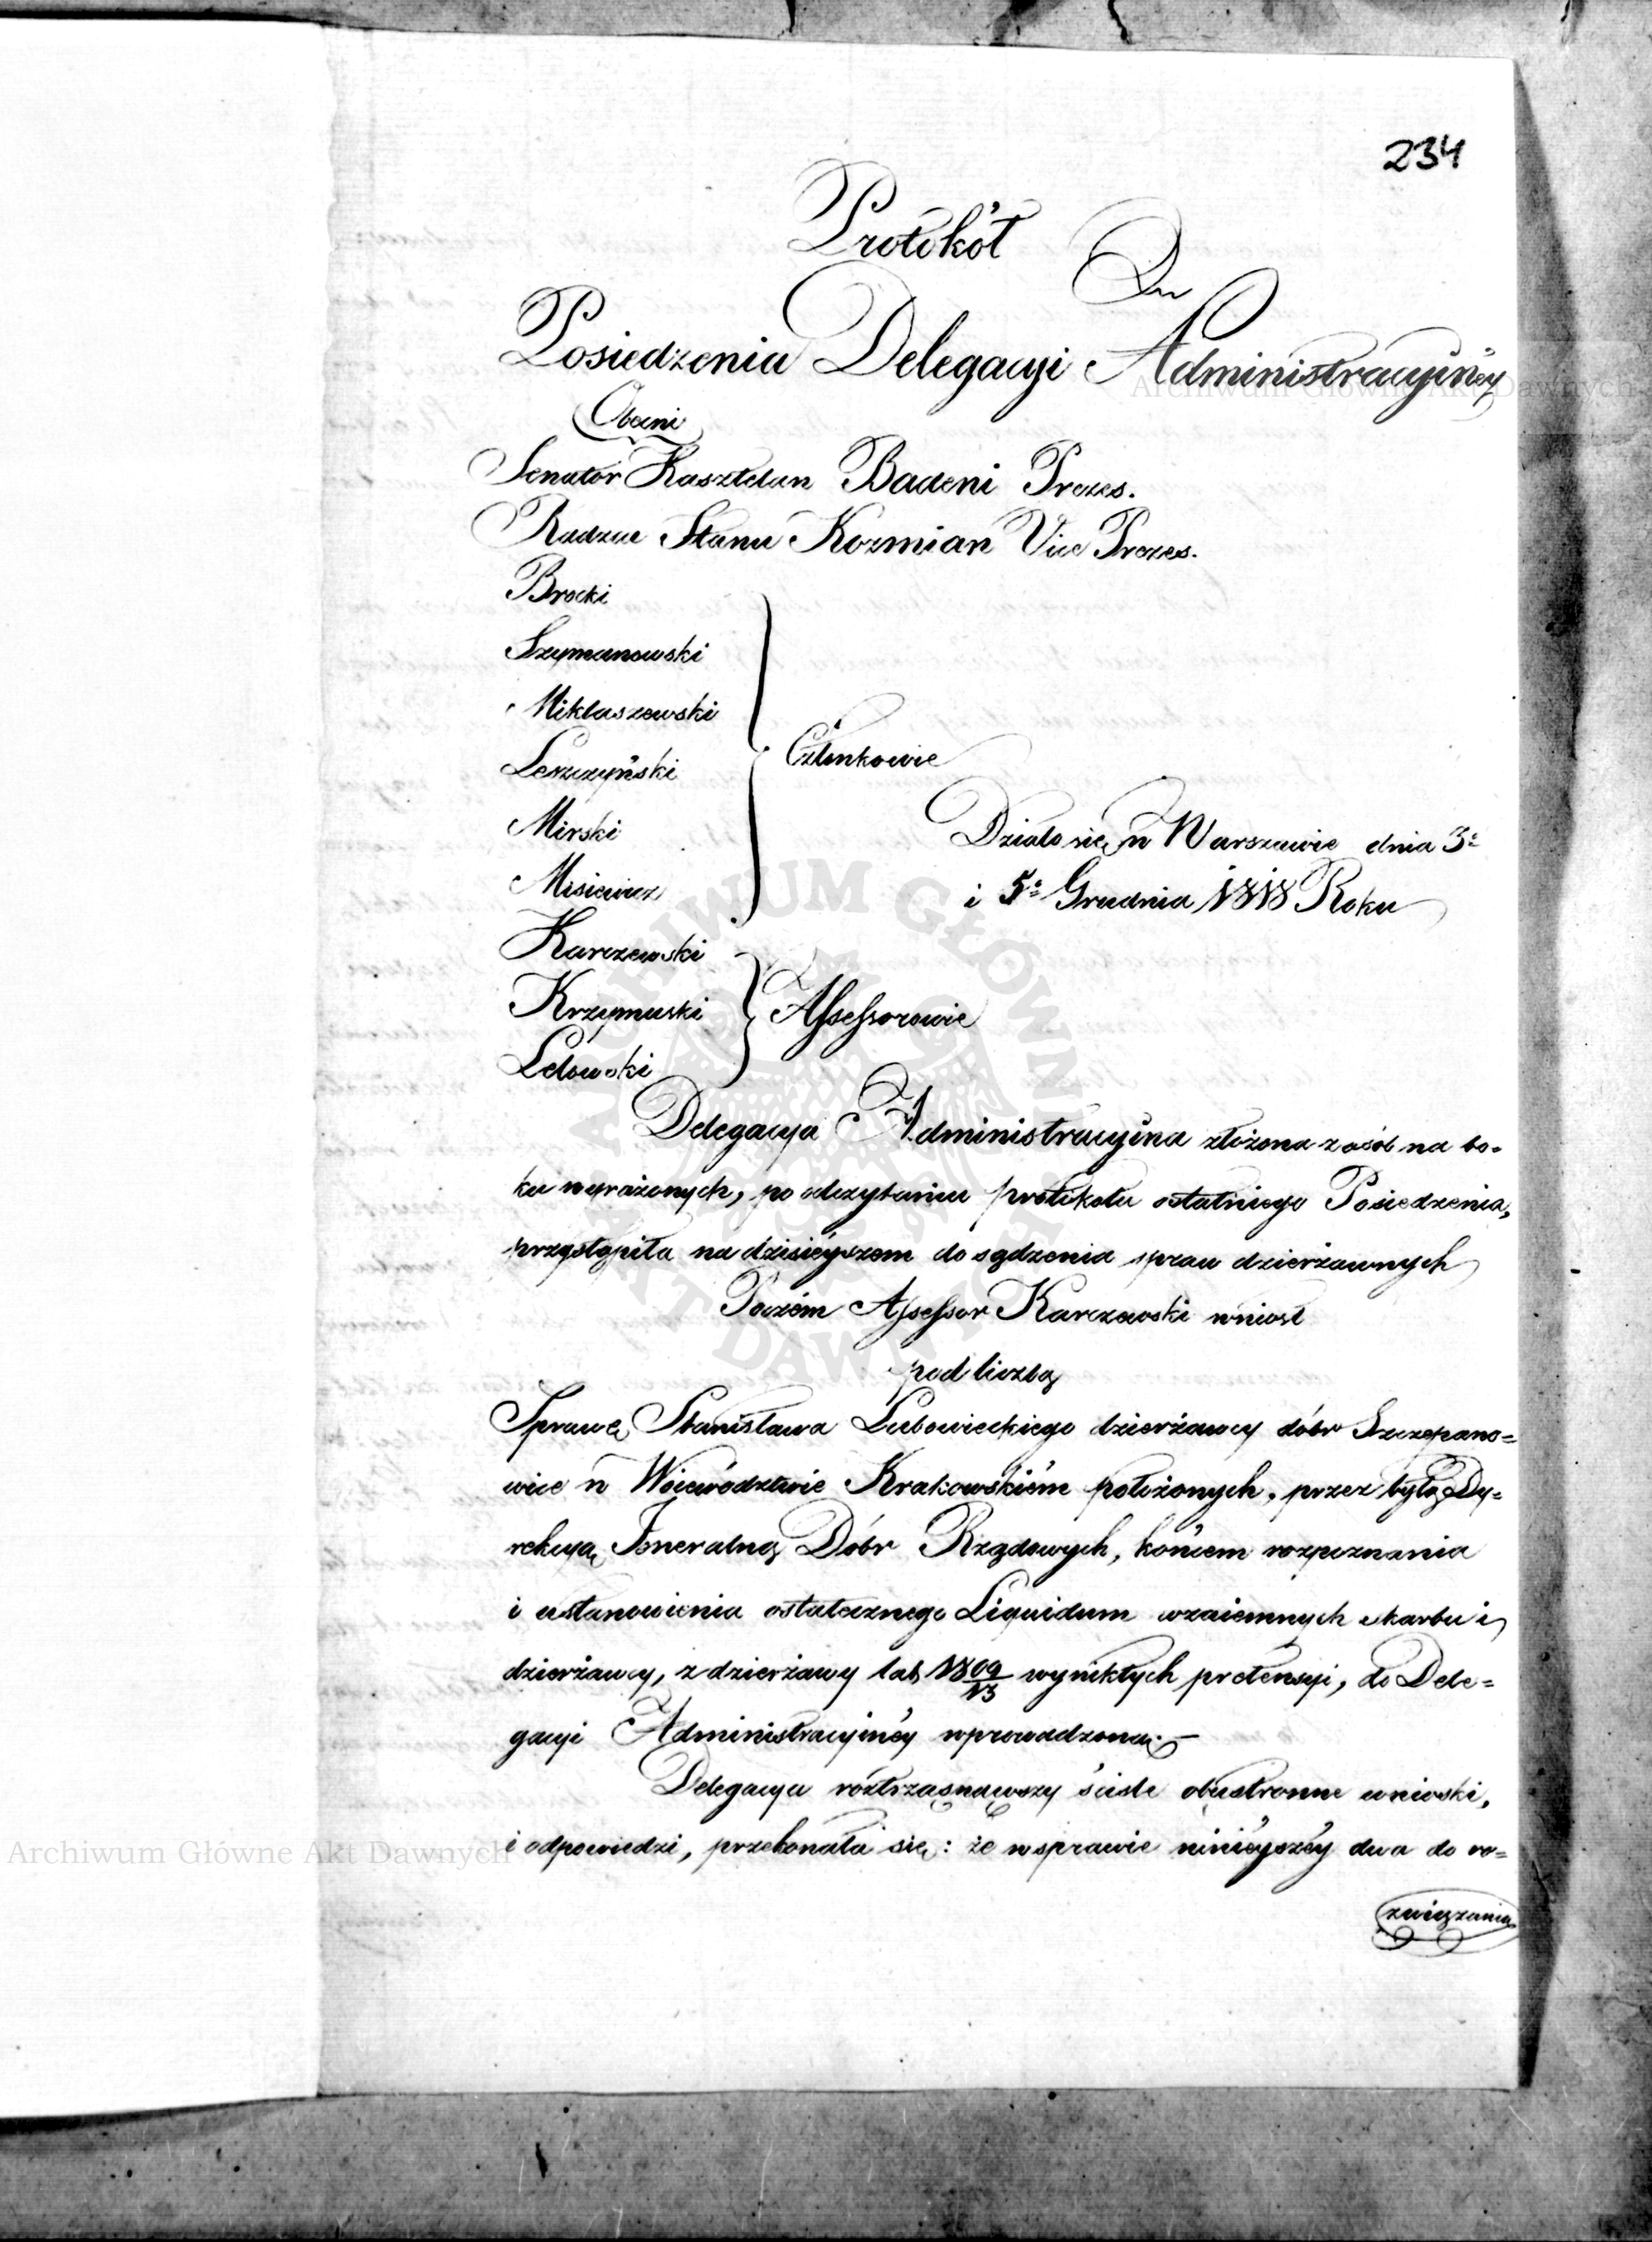 234
Protokół
Posiedzenia Delegacyi Administracyinéy
Obecni
Senator Kasztelan Badeni Prezes.
Radzca Stanu Kozmian Vice Prezes.
Brocki
Szymanowski
Miklaszewski
Leszczyński
Członkowie
Mirski
Działo się w Warszawie dnia 3º
Misiewicz
i 5º Grudnia 1818 Roku
Karczewski
Krzymuski
Assessorowie
Lelowski
Delegacya Administracyina złożona z osób na bo-
ku wyrażonych, po odczytaniu protokołu ostatniego Posiedzenia,
przystąpiła na dzisiéyszem do sądzenia spraw dzierżawnych
Poczém Assessor Karczewski wniósł
pod liczbą
Sprawę Stanisława Lubowieckiego dzierżawcy dóbr Szczepano=
wice w Woiewództwie Krakowskiém położonych, przez byłą Dy=
rekcyą Jeneralną Dóbr Rządowych, końcem rozpoznania
i ustanowienia ostatecznego Liquidum wzaiemnych skarbu i
dzierżawcy, z dzierżawy lat 1809/13 wynikłych pretensyi, do Dele=
gacyi Administracyinéy wprowadzoną.—
Delegacya roztrząsnąwszy ściśle obustronne wnioski,
i odpowiedzi, przekonała się: że w sprawie ninieyszéy dwa do ro=
związania
Archiwum Główne Akt Dawnych
Archiwum Główne Akt Dawnych
ARCHIWUM GŁÓWNE AKT DAWNYCH